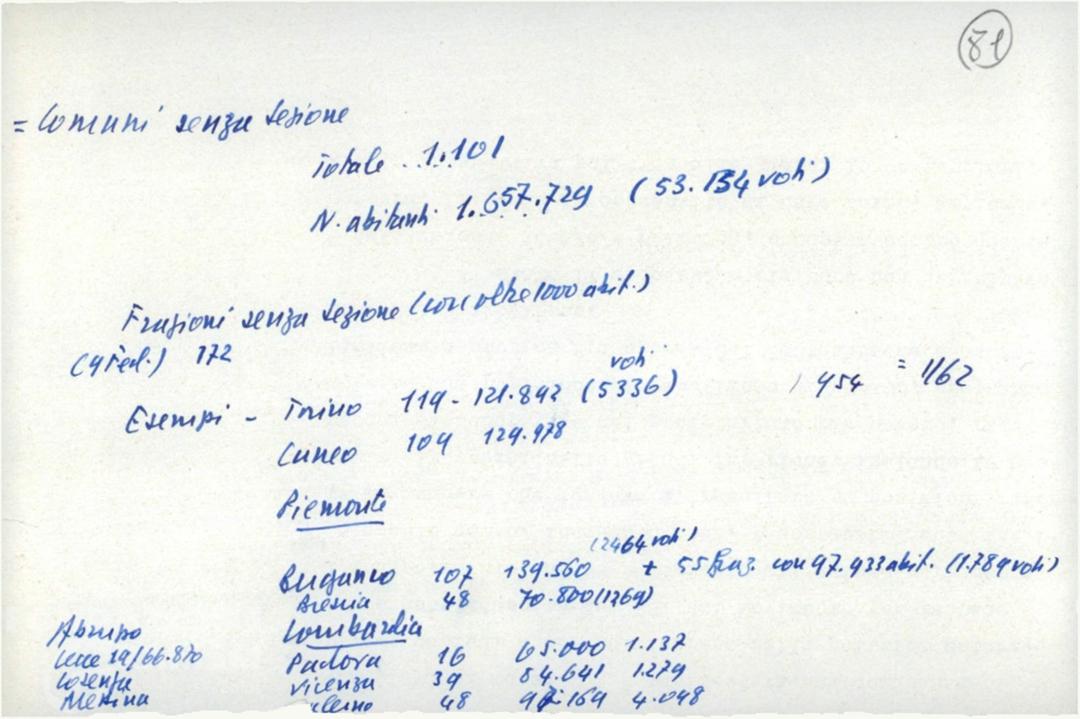 81
= Comuni senza sezione
Totale 1.101
N. abitanti 1.657.729 (53.154 voti)
Frazioni senza sezione (con oltre 1000 abit.)
(9 Fed.) 172
Esempi - Torino 119 - 121.892 (5336) voti / 454 = 1162
Cuneo 104 129.978
Piemonte
(2464 voti)
Bergamo 107 139.560 + 55 fraz. con 97.933 abit. (1.789 voti)
Brescia 48 70.800 (1269)
Lombardia
Abruzzo
Padova 16 65.000 1.137
Lecce 29/66.870
Vicenza 39 84.641 1279
Cosenza
Messina 48 169 4.098